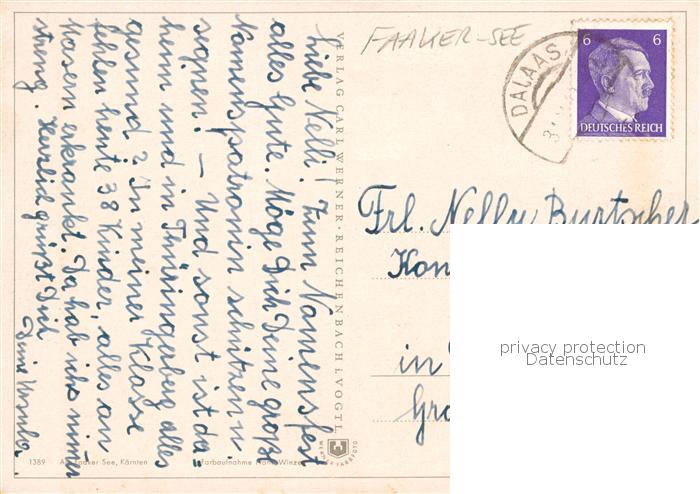 Liebe Nelli! Zum Namensfest
alles Gute. Möge Dich Deine große
Namenspatronin schützen u.
segnen! – Und sonst ist da-
heim und in Thüringaberg alles
gesund? In meiner Klasse
fehlen heute 38 Kinder, alles an
Masern erkrankt. Da hab ichs nimmer
streng. Herzlich grüßt Dich
Deine
VERLAG CARL WERNER · REICHENBACH I. VOGTL.
WERNER FARBFOTO
1389 Am Faaker See, Kärnten
Farbaufnahme Hans
FAAKER-SEE
DALAAS
6 6
DEUTSCHES REICH
Frl. Nelly Burtscher
Kon
in
Gro
privacy protection
Datenschutz